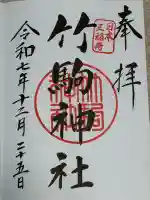 奉拝
日本三稲荷
竹駒神社
令和七年十二月二十五日